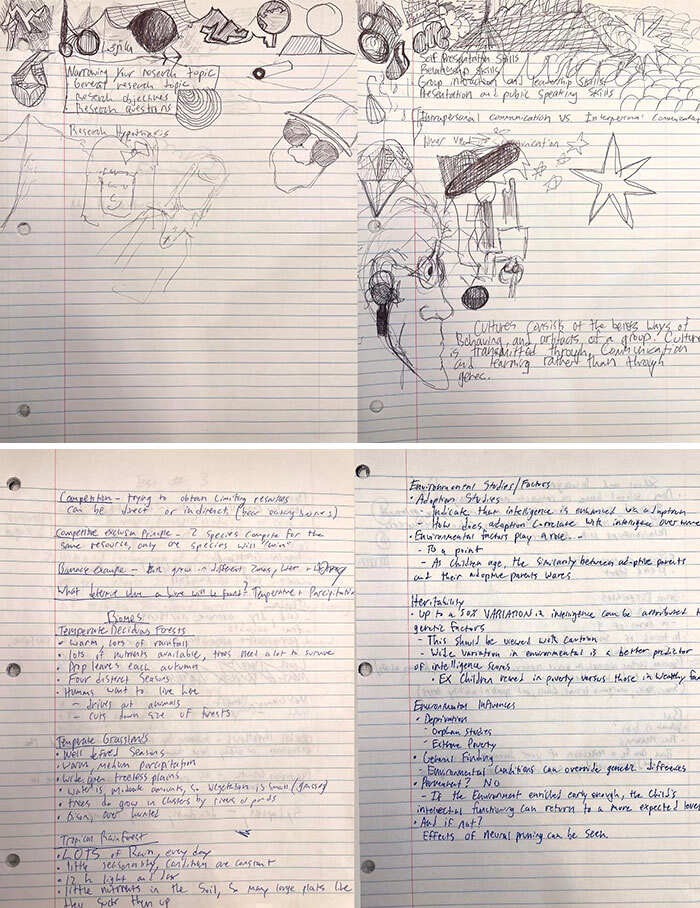 Narrowing your research topic
General research topic
Research objectives
Research questions
Research Hypothesis
Self Presentation Skills
Relationship Skills
Group interaction and leadership skills
Presentation and public speaking skills
Intrapersonal communication VS Interpersonal Communication
Cultures consist of the beliefs ways of
Behaving, and artifacts of a group. Culture
is transmitted through communication
and learning rather than through
genes.
Competition - trying to obtain limiting resources
can be direct or indirect
Competitive exclusion Principle - 2 species compete for the
same resource, only one species will "win"
example - grow in different zones,
What determine where a biome will be found? Temperature + Precipitation
Biomes
Temperate Decidious Forests
• Warm, lots of rainfall
• lots of nutrients available, trees need a lot to survive
• Drop leaves each autumn
• Four distinct seasons
• Humans want to live here
- drives out animals
- cuts down size of forests
Temperate Grasslands
• Well defined Seasons
• Warm, medium percipitation
• Wide open treeless plains
• Water is moderate amounts, so vegetation is small (grasses)
• trees do grow in clusters by rivers or ponds
• Bison, over hunted
Tropical Rainforest
• LOTS of Rain, every day
• little seasonality, conditions are constant
• 12 h light and dark
• little nutrients in the soil, so many large plants like
they suck them up
Environmental Studies/Factors
• Adoption Studies
- Indicate that intelligence is enhanced via adoption
- How does adoption correlate with intelligence over time
• Environmental factors play a role...
- To a point
- As children age, the similarity between adoptive parents
and their adoptive parents wanes
Heritability
• Up to a 50% VARIATION in intelligence can be attributed to
genetic factors
- This should be viewed with caution
- Wide variation in environmental is a better predictor
of intelligence scores
• EX Children reared in poverty versus those in wealthy
Environmental Influences
• Deprivation
• Orphan studies
• Extreme Poverty
• General Finding
- Environmental Conditions can override genetic differences
• Permanent? NO
- If the Environment enriched early enough, the child's
intellectual functioning can return to a more expected level
• And if not?
Effects of neural pruning can be seen